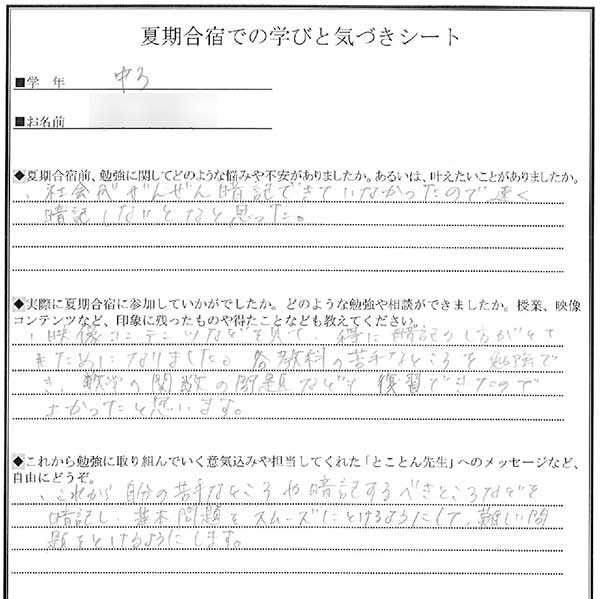 夏期合宿での学びと気づきシート
■学 年 中3
■お名前
◆夏期合宿前、勉強に関してどのような悩みや不安がありましたか。あるいは、叶えたいことがありましたか。
・社会がぜんぜん暗記できていなかったので速く
暗記しないとなと思った。
◆実際に夏期合宿に参加していかがでしたか。どのような勉強や相談ができましたか。授業、映像
コンテンツなど、印象に残ったものや得たことなども教えてください。
・映像コンテンツなどを見て、特に暗記のし方がとて
きためになりました。各教科の苦手なところを勉強で
き、数学の関数の問題なども復習できたので
よかったと思います。
◆これから勉強に取り組んでいく意気込みや担当してくれた「とことん先生」へのメッセージなど、
自由にどうぞ。
・これから自分の苦手なところや暗記するべきところなどを
暗記し、基本問題をスムーズにとけるようにして、難しい問
題をとけるようにします。